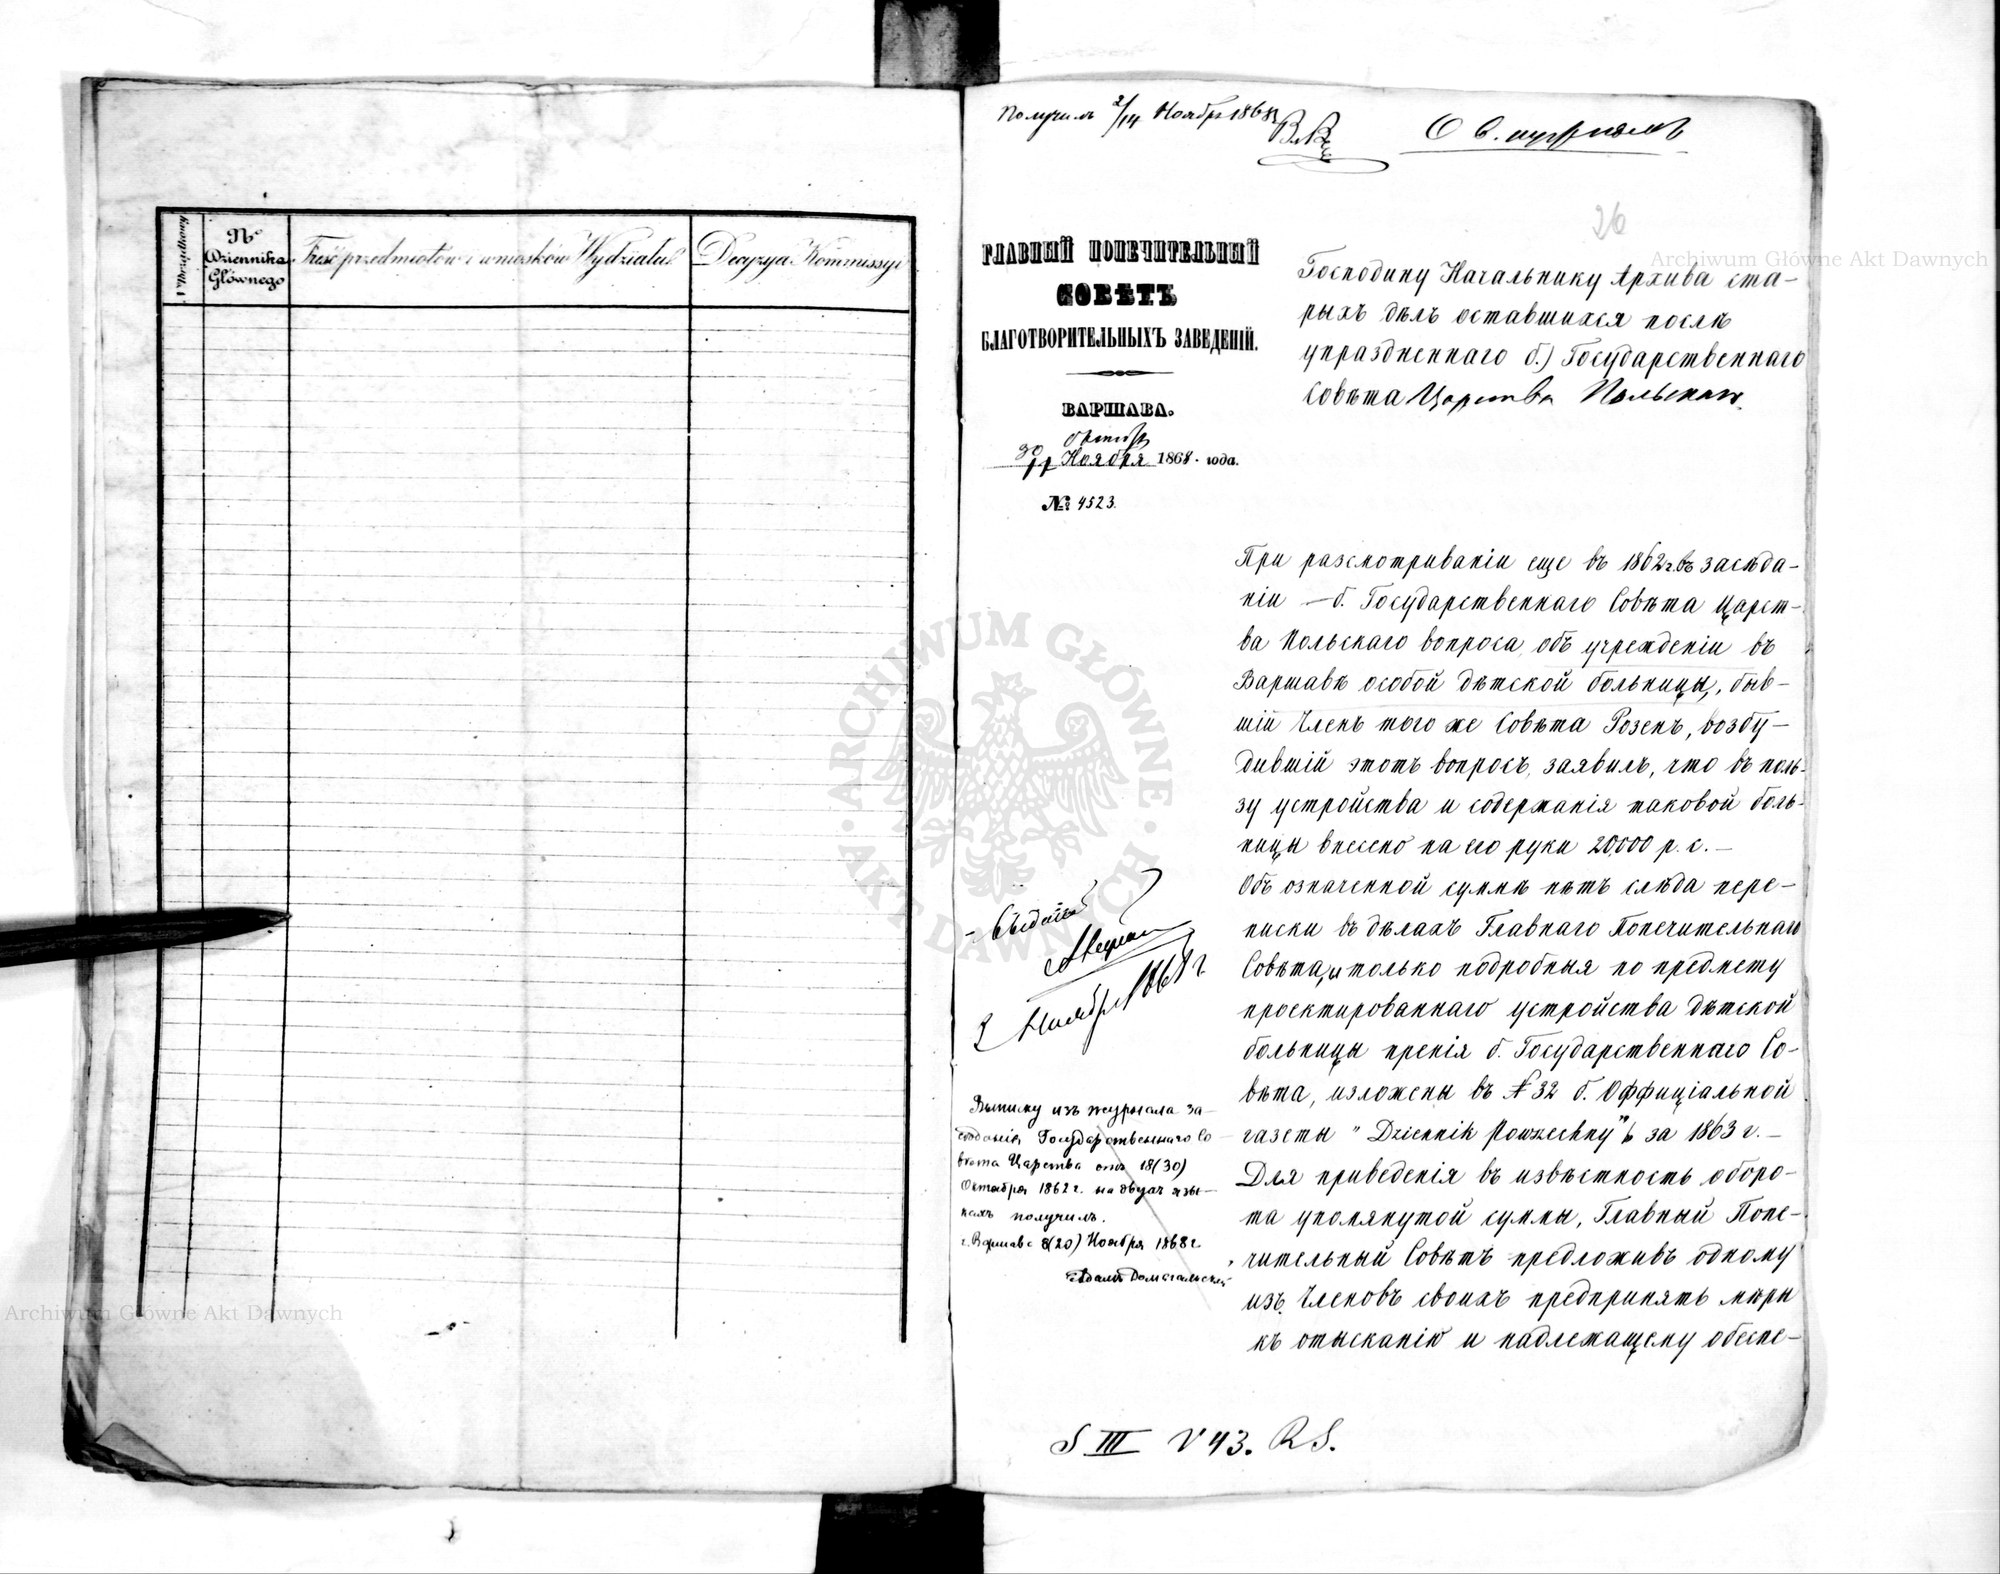 N porządkowy
No Dziennika Głównego
Treść przedmiotów i wniosków Wydziału
Decyzya Kommissyi
Получилъ 2/14 Ноября 1868
26
ГЛАВНЫЙ ПОПЕЧИТЕЛЬНЫЙ
СОВѢТЪ
БЛАГОТВОРИТЕЛЬНЫХЪ ЗАВЕДЕНІЙ.
ВАРШАВА.
Октября
30/11 Ноября 1868. года.
№ 4523.
Господину Начальнику Архива ста-
рыхъ дѣлъ оставшихся послѣ
упраздненнаго б.) Государственнаго
Совѣта Царства Польскаго.
При разсмотриваніи еще въ 1862 г. въ засѣда-
ніи — б. Государственнаго Совѣта Царст-
ва Польскаго вопроса, объ учрежденіи въ
Варшавѣ особой дѣтской больницы, быв-
шій Членъ того же Совѣта Розенъ, возбу-
дившій этотъ вопросъ, заявилъ, что въ поль-
зу устройства и содержанія таковой боль-
ницы внесено на его руки 20000 р. с. —
Объ означенной суммѣ нѣтъ слѣда пере-
писки въ дѣлахъ Главнаго Попечительнаго
Совѣта, и только подробныя по предмету
проектированнаго устройства дѣтской
больницы пренія б. Государственнаго Со-
вѣта, изложены въ № 32 б. Оффиціальной
газеты "Dziennik Powszechny" за 1863 г. —
Для приведенія въ извѣстность оборо-
та упомянутой суммы, Главный Попе-
чительный Совѣтъ предложивъ одному
изъ Членовъ своихъ предпринять мѣры
къ отысканію и надлежащему обеспе-
2 Ноября 1868 г
Выписку изъ журнала за-
сѣданія Государственнаго Со
вѣта Царства отъ 18(30)
Октября 1862 г. на двухъ язы-
кахъ получилъ.
г. Варшава 8(20) Ноября 1868 г.
Адамъ Домагальскій
S III V 43. R S.
Archiwum Główne Akt Dawnych
ARCHIWUM GŁÓWNE · AKT DAWNYCH ·
Archiwum Główne Akt Dawnych